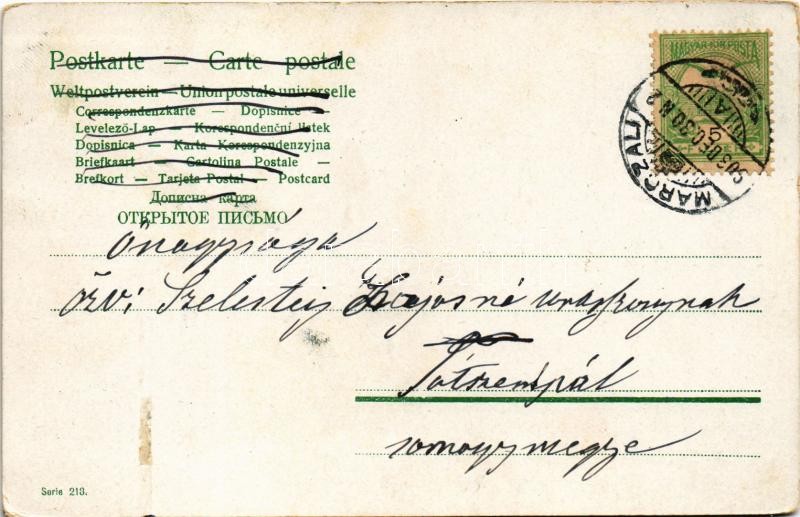 Postkarte — Carte postale
Weltpostverein — Union postale universelle
Correspondenzkarte — Dopisnice
Levelező-Lap — Korespondenční lístek
Dopisnica — Karta Korespondenzyjna
Briefkaart — Cartolina Postale —
Brefkort — Tarjeta Postal — Postcard
Дописна карта
ОТКРЫТОЕ ПИСЬМО
MAGYAR KIR. POSTA
MARCZALI
906 DEC. 30
Őnagysága
özv: Szelesteÿ Lajosné uraskonynak
Tótszenpál
somogymegye
Serie 213.